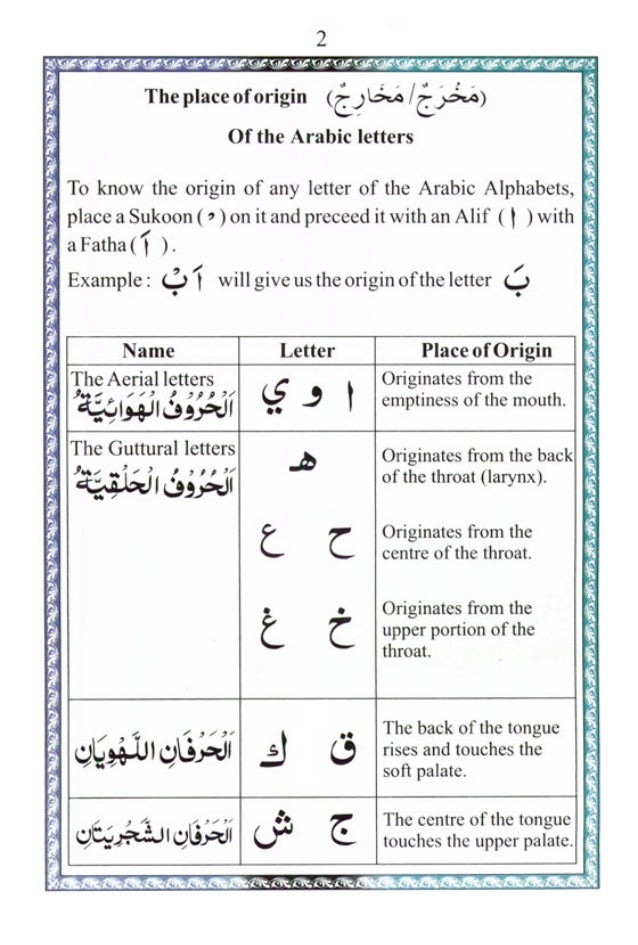 2
The place of origin (مَخْرَجٌ / مَخَارِجٌ)
Of the Arabic letters
To know the origin of any letter of the Arabic Alphabets,
place a Sukoon ( ْ ) on it and preceed it with an Alif ( ا ) with
a Fatha ( اَ ) .
Example : اَبْ will give us the origin of the letter بَ
Name Letter Place of Origin
The Aerial letters
اَلْحُرُوْفُ الْهَوَائِيَّةُ
ا و ي
Originates from the
emptiness of the mouth.
The Guttural letters
اَلْحُرُوْفُ الْحَلْقِيَّةُ
هـ
Originates from the back
of the throat (larynx).
ح ع
Originates from the
centre of the throat.
خ غ
Originates from the
upper portion of the
throat.
اَلْحَرْفَانِ اللَّهْوِيَانِ
ق ك
The back of the tongue
rises and touches the
soft palate.
اَلْحَرْفَانِ الشَّجْرِيَتَانِ
ج ش
The centre of the tongue
touches the upper palate.